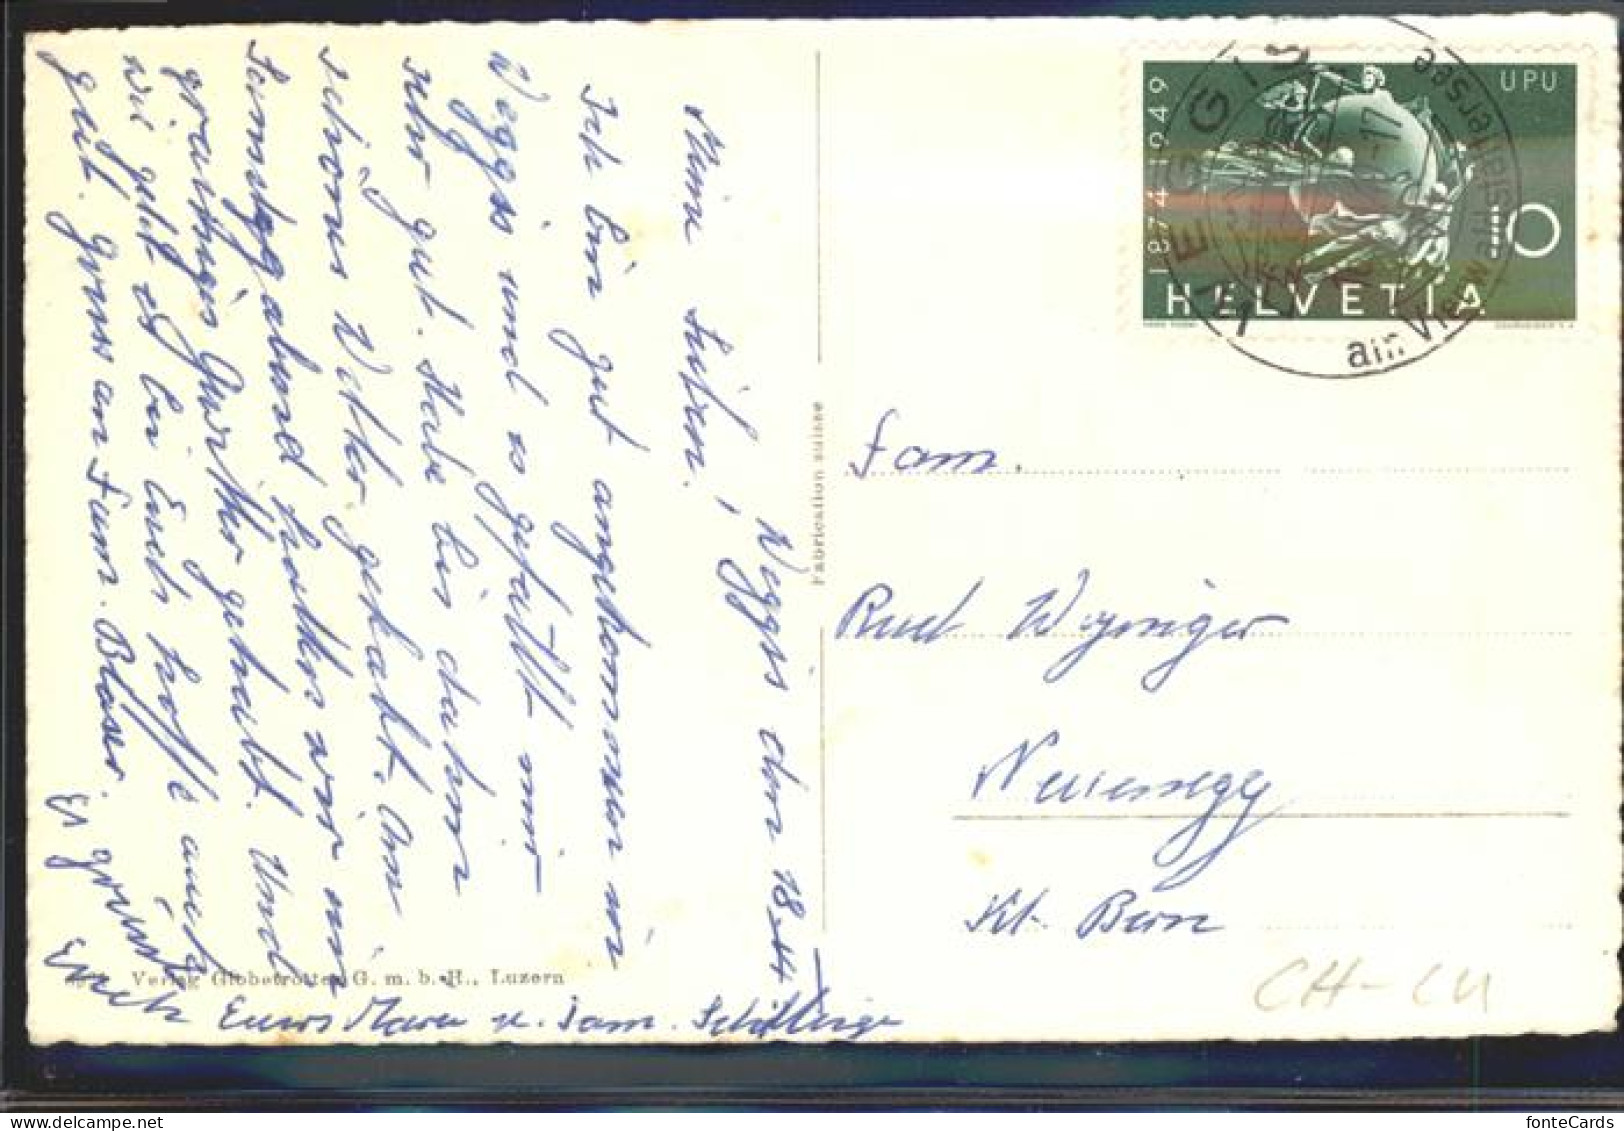 Weggis den 18.
Meine Lieben!
Ich bin gut angekommen in
Weggis und es gefällt mir
sehr gut. Habe bis dahin
schönes Wetter gehabt. Am
Samstag abend hatten wir ein
grausiges Gewitter gehabt. Und
wie geht es bei Euch hoffe auch
gut. Gruss an Fam. Blaser.
Es grüsst
Euch
Fam. Schillinger
Verlag Globetrotter G. m. b. H., Luzern
Fabrication suisse
1874 1949
UPU
10
HELVETIA
WEGGIS
am Vierwaldstättersee
-17
Fam.
Neuenegg
Kt. Bern
CH-LU
fonteCards